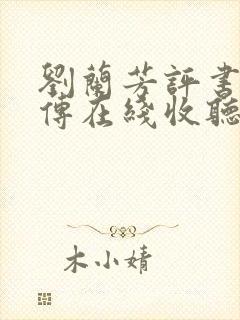 劉蘭芳評書
傅在綫收聽
木小婧